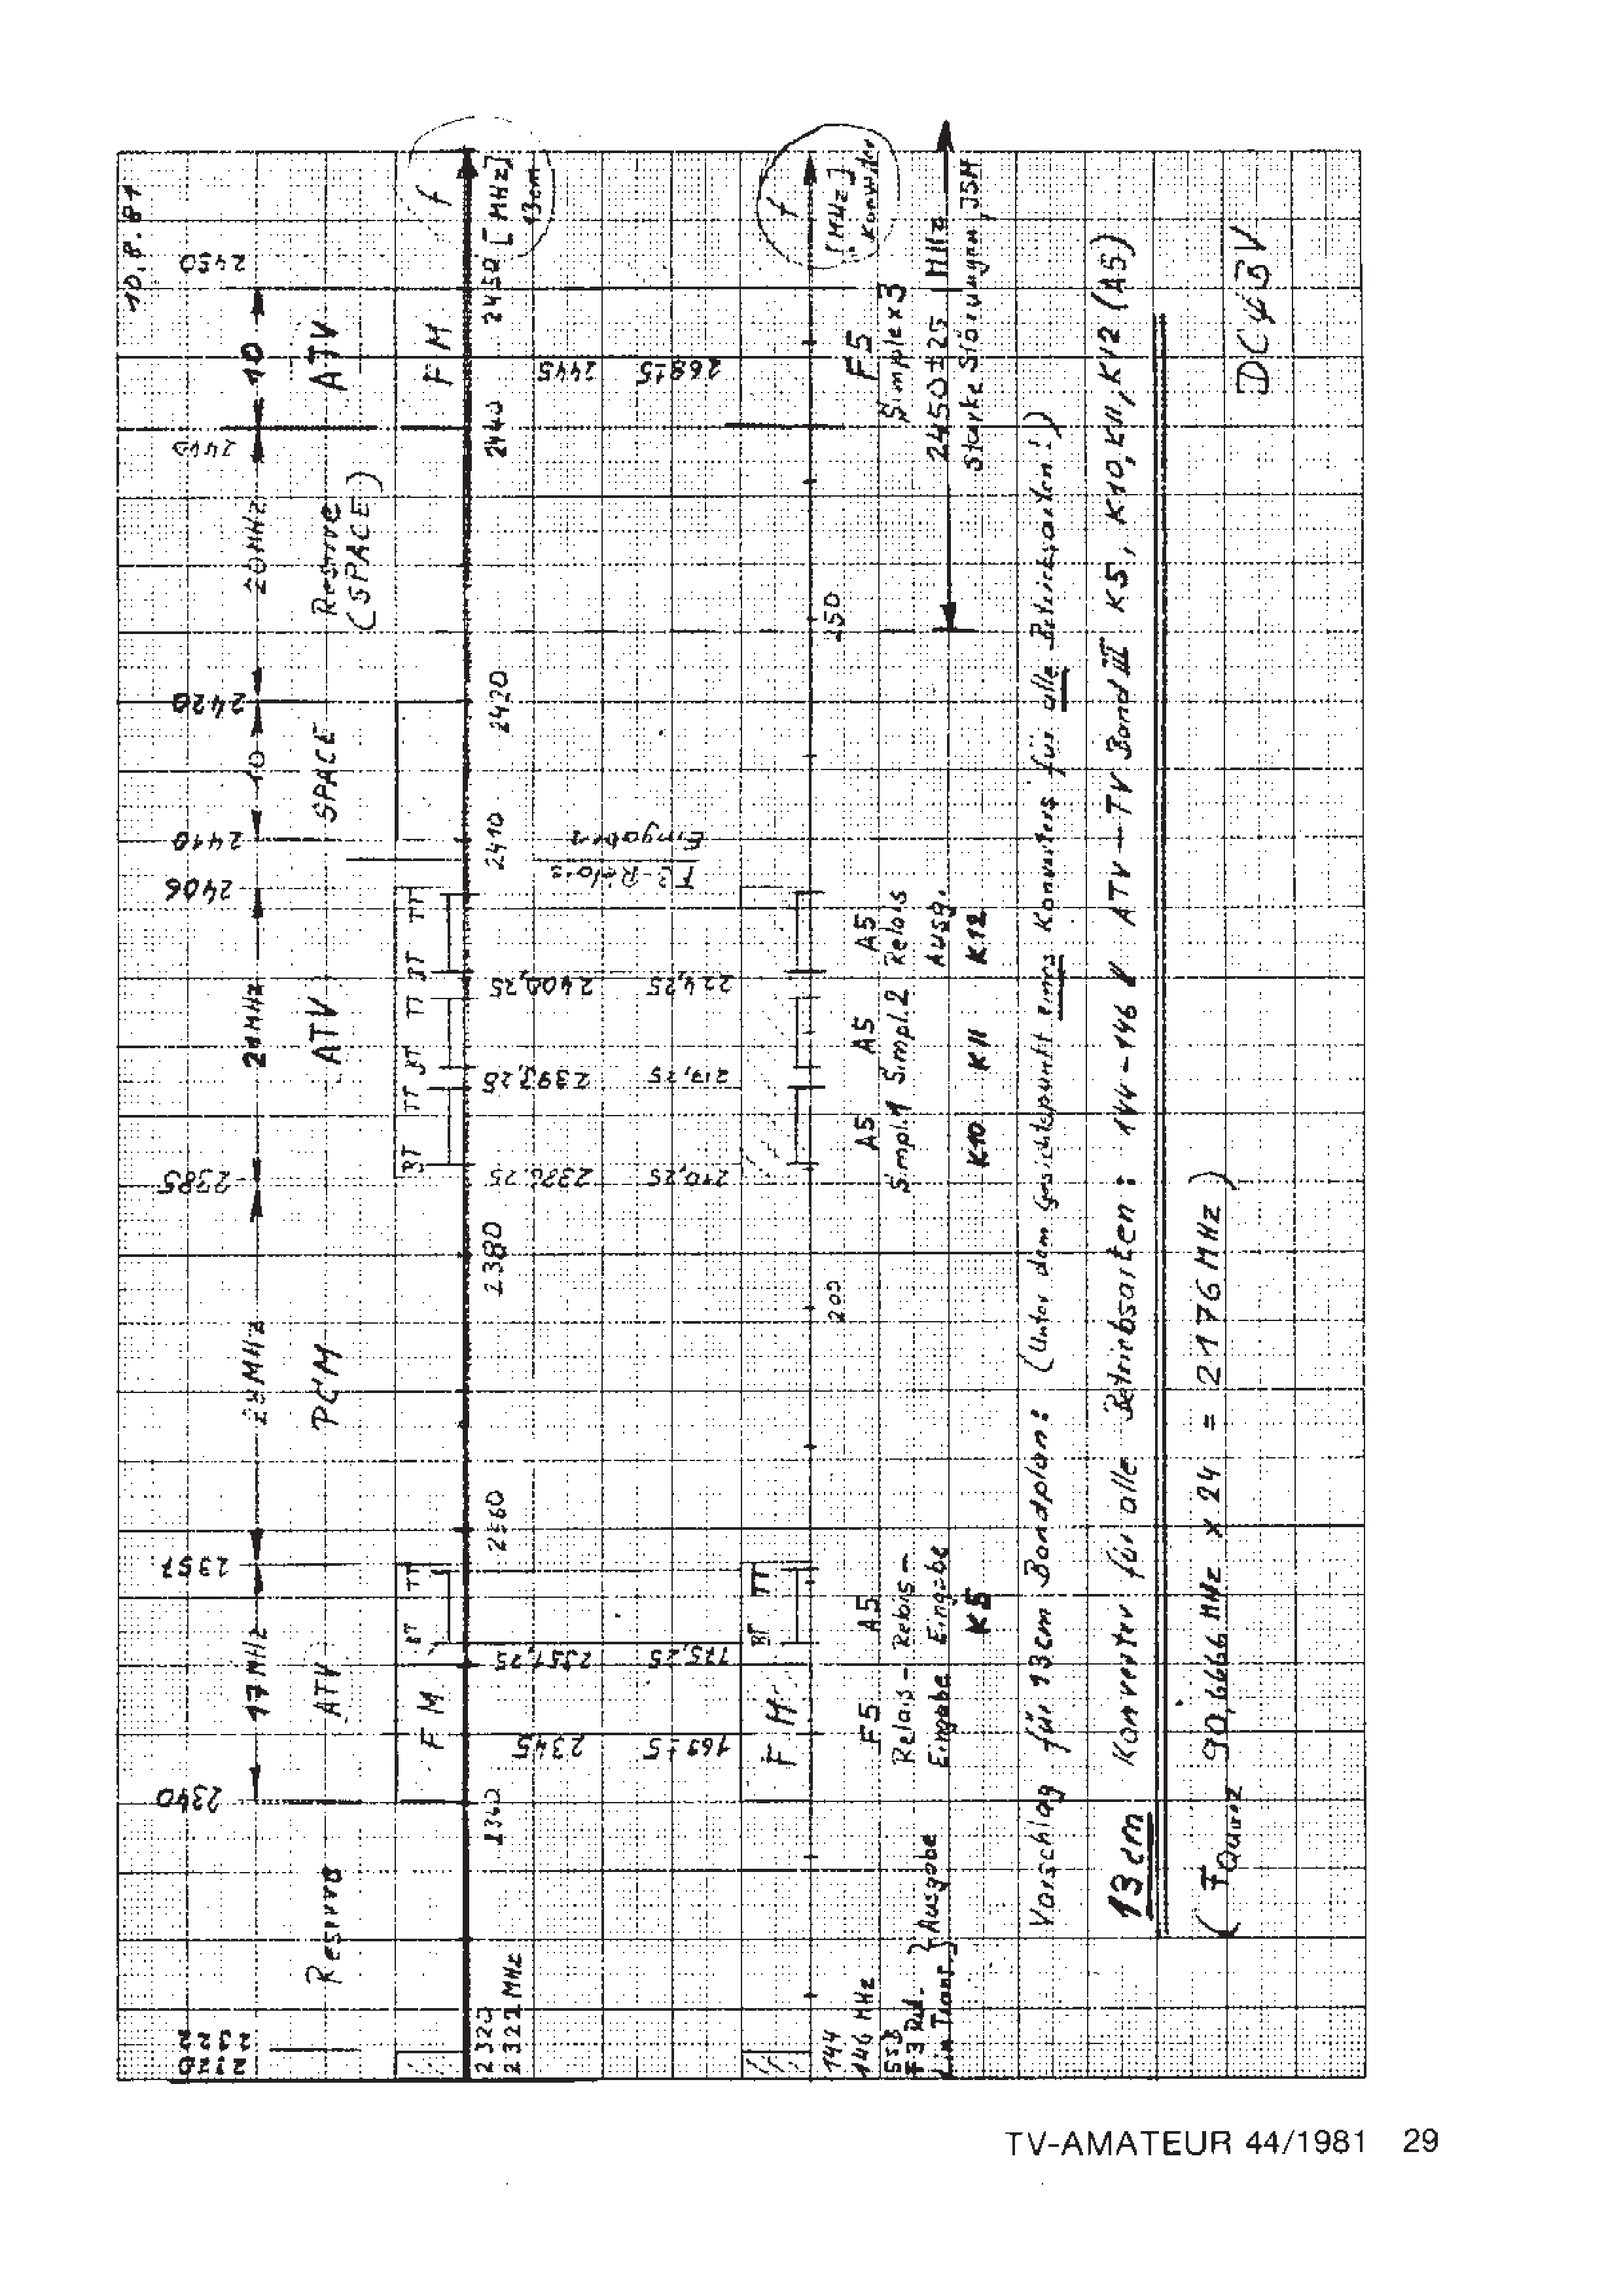 10.8.81
2320
2322
2340
2357
2385
2406
2410
2420
2440
2450
17MHz
28MHz
21MHz
10
20MHz
10
Reserve
ATV
PCM
ATV
SPACE
Reserve
(SPACE)
ATV
FM
BT TT
BT TT
BT TT
BT TT
FM
f
2320
2322 MHz
2340
2360
2380
2410
2420
2440
2450 [MHz]
13cm
2345
2351,25
2386,25
2393,25
2400,25
F3-Relais
Eingaben
2445
169
175,25
210,25
217,25
224,25
FM
BT TT
f
144
146 MHz
200
250
[MHz]
Konverter
SSB
F3 Rel.
Lin Trans.
} Ausgabe
F5
Relais-
Eingabe
A5
Relais-
Eingabe
K5
A5
Simpl.1
K10
A5
Simpl.2
K11
A5
Relais
Ausg.
K12
F5
Simplex 3
2450±25 MHz
Starke Störungen, JSM
Vorschlag für 13cm Bandplan: (Unter dem Gesichtspunkt eines Konverters für alle Betriebsarten!)
13cm Konverter für alle Betriebsarten: 144-146 // ATV-TV Band III K5, K10, K11, K12 (A5)
(FQuarz 90,6666 MHz x 24 = 2176 MHz)
DC4BV
TV-AMATEUR 44/1981 29